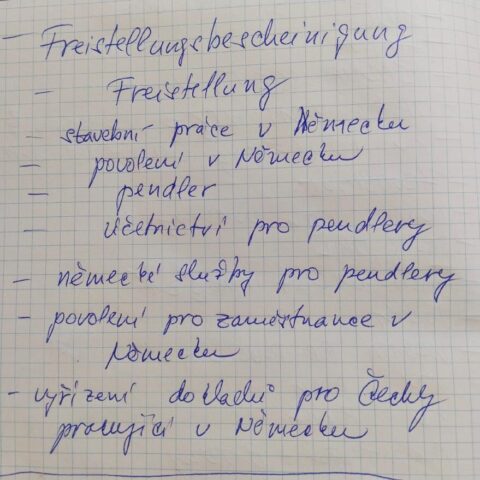 - Freistellungsbescheinigung
- Freistellung
- stavební práce v Německu
- povolení v Německu
- pendler
- účetnictví pro pendlery
- německé služby pro pendlery
- povolení pro zaměstnance v
Německu
- vyřízení dokladů pro Čechy
pracující v Německu